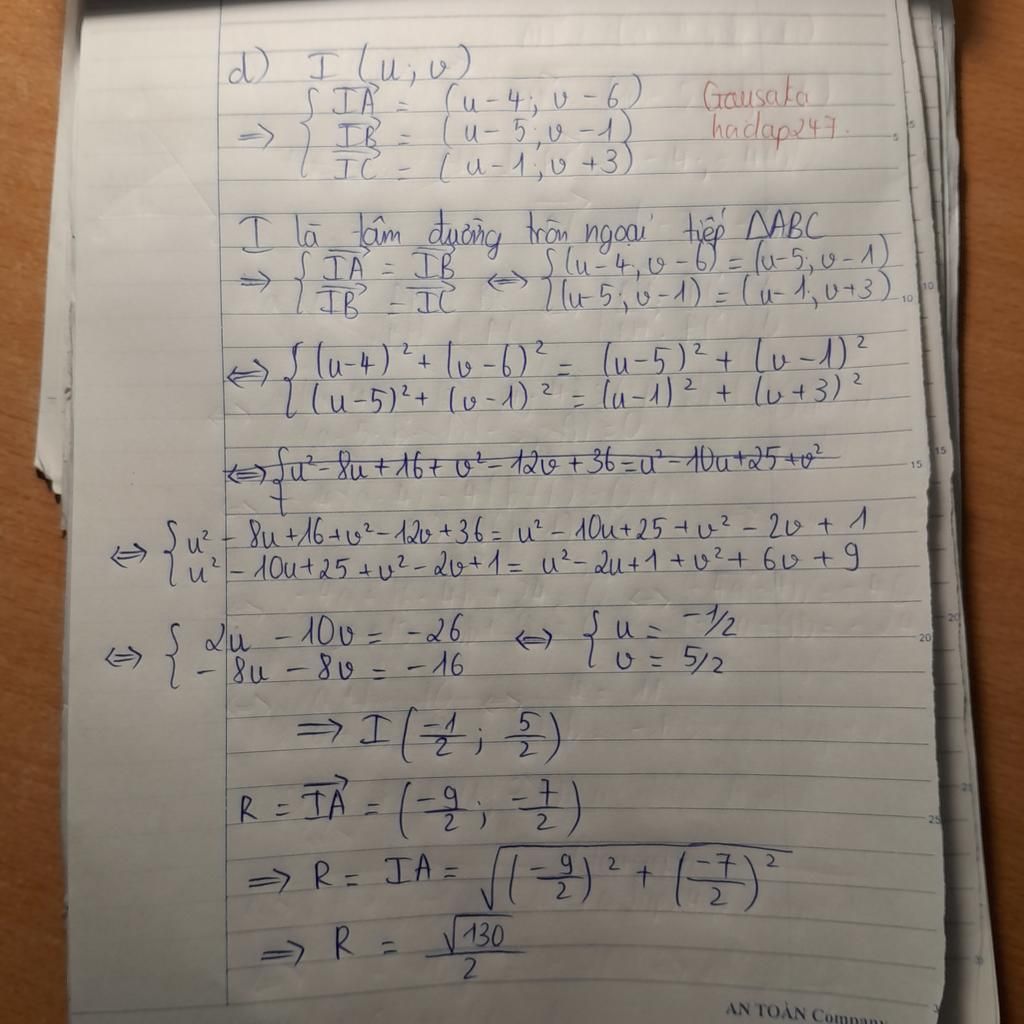 d) I (u; v)
{ IA→ = (u-4; v-6)
⇒ { IB→ = (u-5; v-1)
{ IC→ = (u-1; v+3)
Gausata
hadap247.
I là tâm đường tròn ngoại tiếp ΔABC
⇒ { IA→ = IB→ ⇔ { (u-4; v-6) = (u-5; v-1)
{ IB→ = IC→ { (u-5; v-1) = (u-1; v+3)
⇔ { (u-4)² + (v-6)² = (u-5)² + (v-1)²
{ (u-5)² + (v-1)² = (u-1)² + (v+3)²
⇔ { u² - 8u + 16 + v² - 12v + 36 = u² - 10u + 25 + v²
⇔ { u² - 8u + 16 + v² - 12v + 36 = u² - 10u + 25 + v² - 2v + 1
{ u² - 10u + 25 + v² - 2v + 1 = u² - 2u + 1 + v² + 6v + 9
⇔ { 2u - 10v = -26 ⇔ { u = -1/2
{ -8u - 8v = -16 { v = 5/2
⇒ I (-1/2; 5/2)
R = IA→ = (-9/2; -7/2)
⇒ R = IA = √((-9/2)² + (-7/2)²)
⇒ R = √130/2
AN TOÀN Company